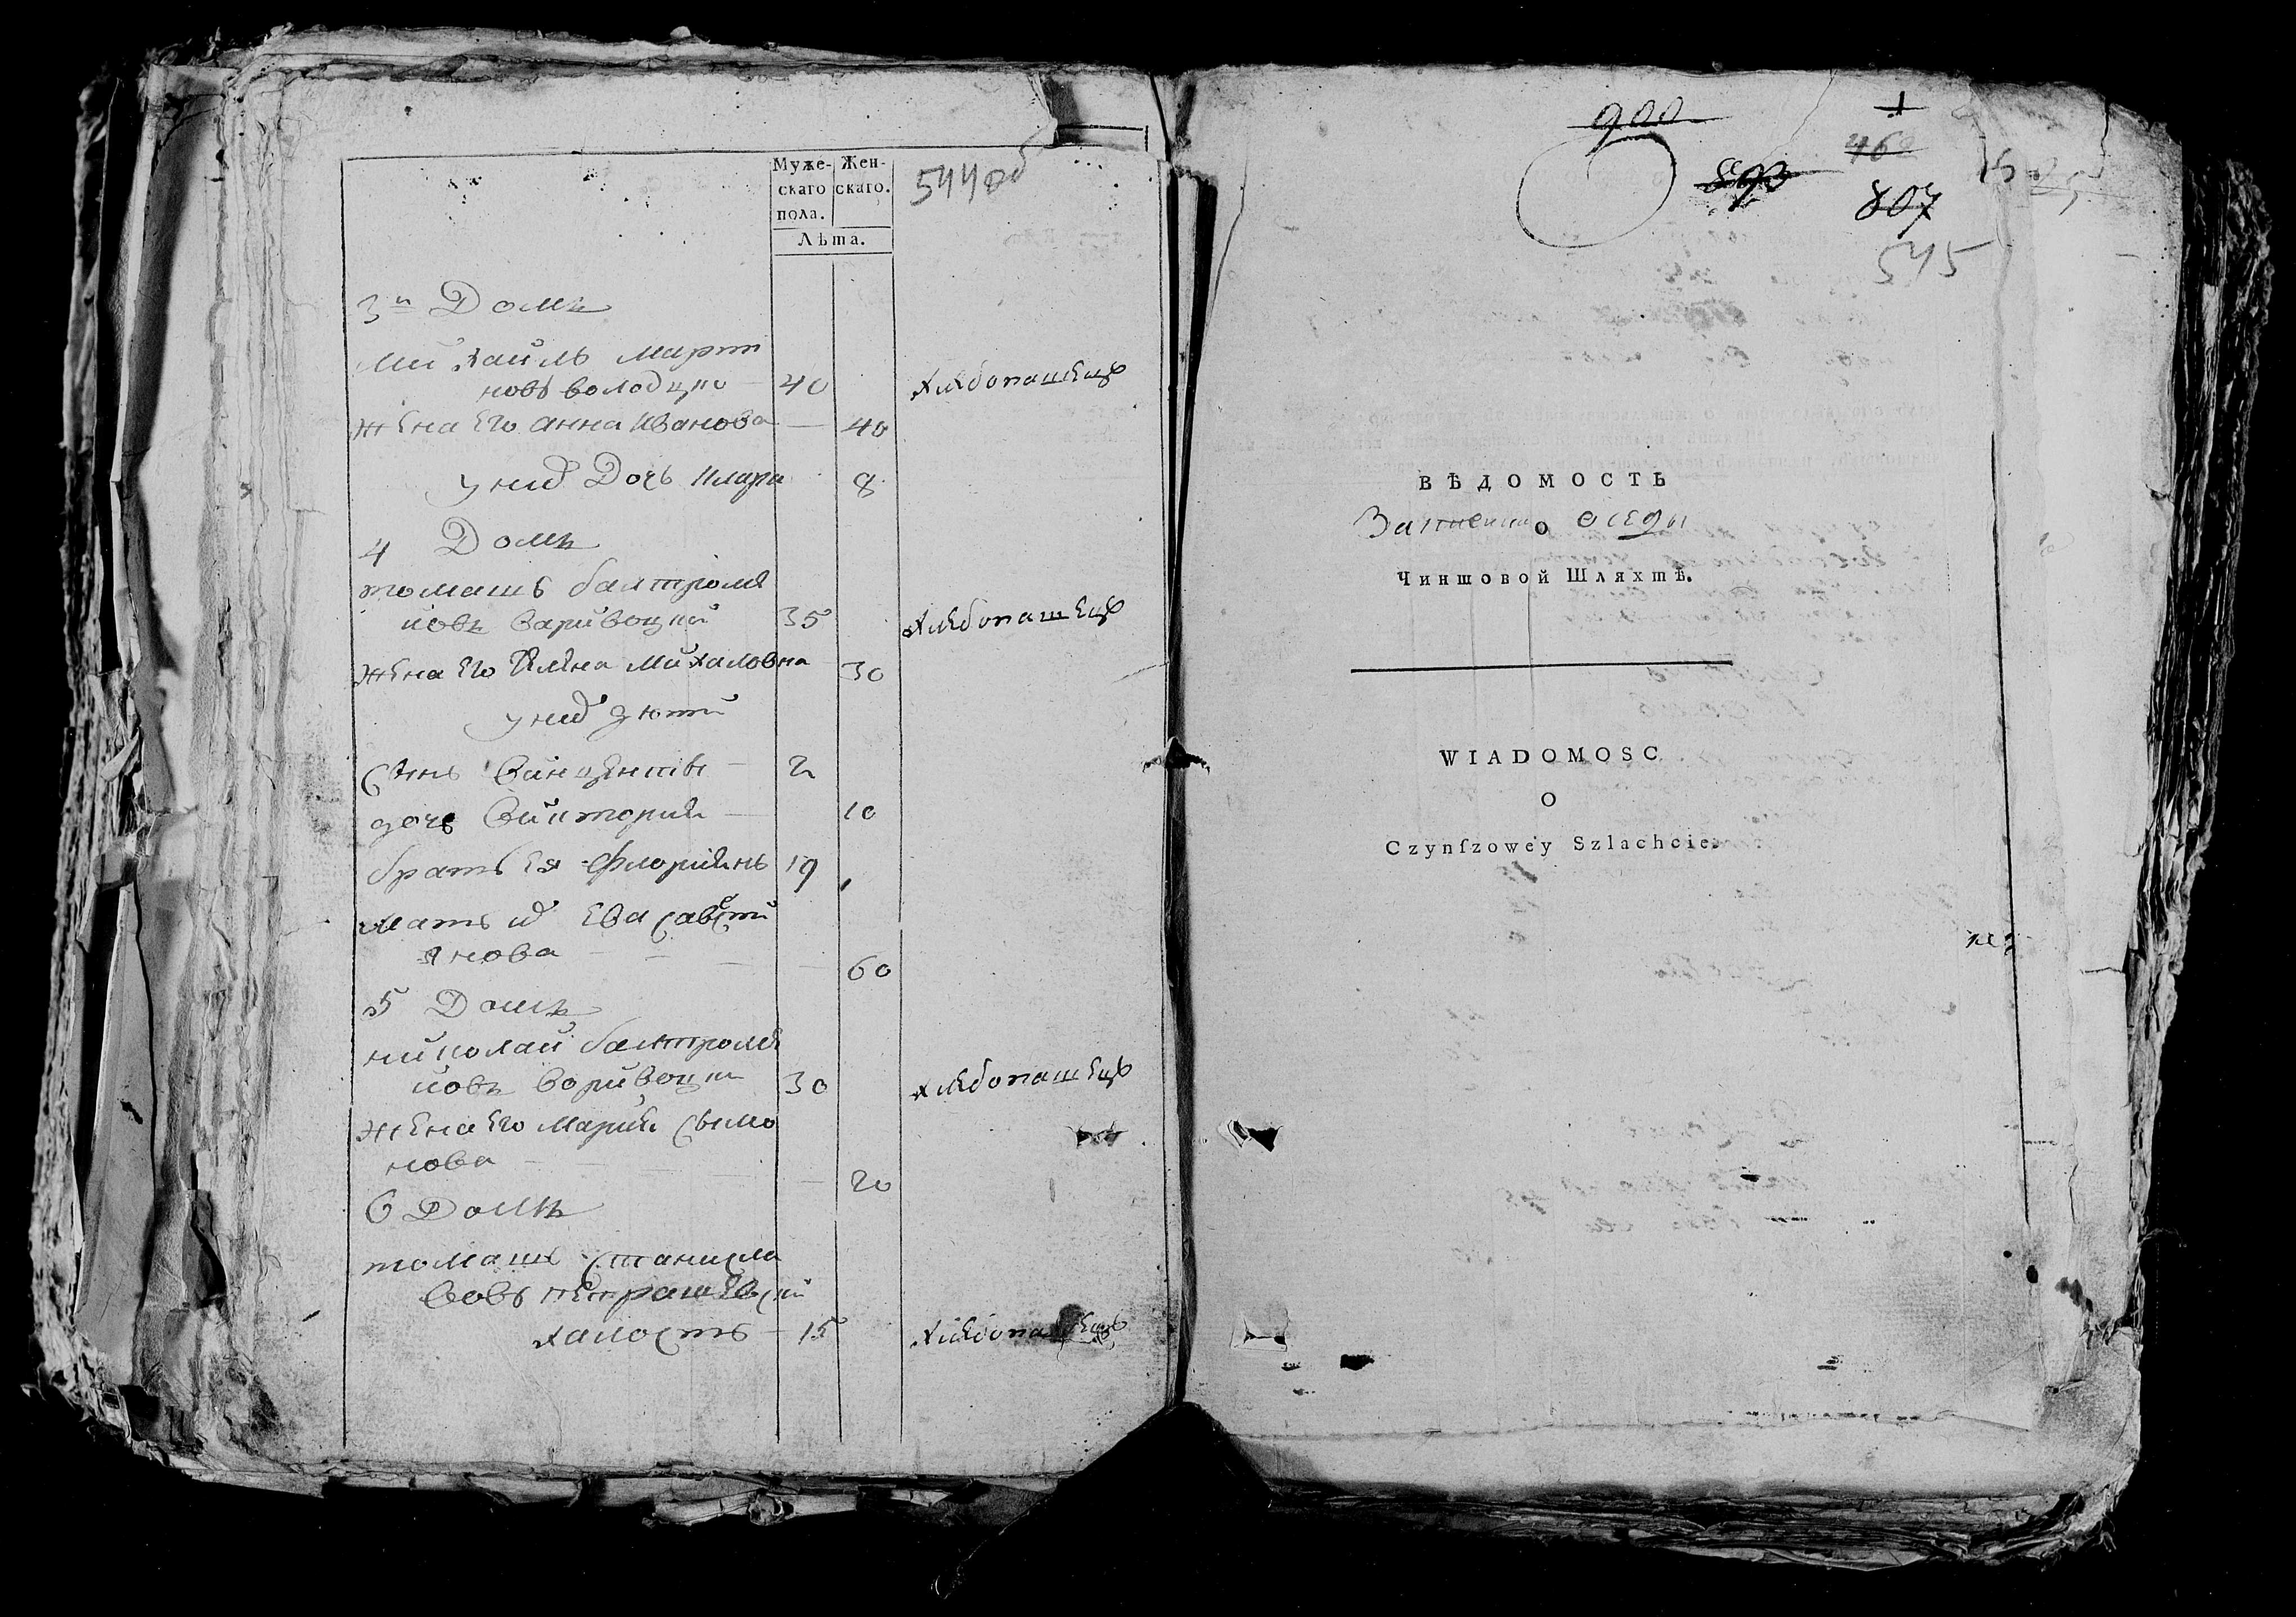 Муже- Жен-
скаго скаго.
пола.
Лѣта.
544об
3й Домъ
Михаилъ Март
новъ володцко 40 хлѣбопашецъ
жена его анна Иванова 40
у них Дочь Клара 8
4 Домъ
томашъ балтромѣ
йовъ Варивоцкий 35 хлѣбопашецъ
жена его Еліна Михаловна 30
у них дѣти
Сынъ Винценты 2
дочь Виктория 10
братъ ея Флориянъ 19
мать их Ева Савости
янова 60
5 Домъ
николай балтромѣ
йовъ Воривоцки 30 хлѣбопашецъ
жена его Мария Сымо
нова 20
6 Домъ
томашъ Станисла
вовъ Петрашевский
халостъ 15 хлѣбопашецъ
900
893
460
807
545
ВѢДОМОСТЬ
О оседы
Чиншовой Шляхтѣ.
WIADOMOSC
O
Czynſzowey Szlachcie.